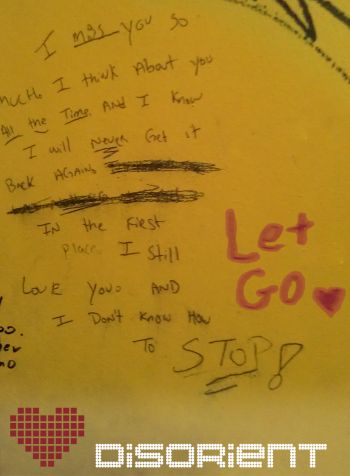 I miss you so
much. I think About you
All the Time. And I know
I will Never Get it
Back AGAIN.
IN the First
place I Still
Love You. AND
I Don't Know How
To STOP!
Let
GO
DISORIENT